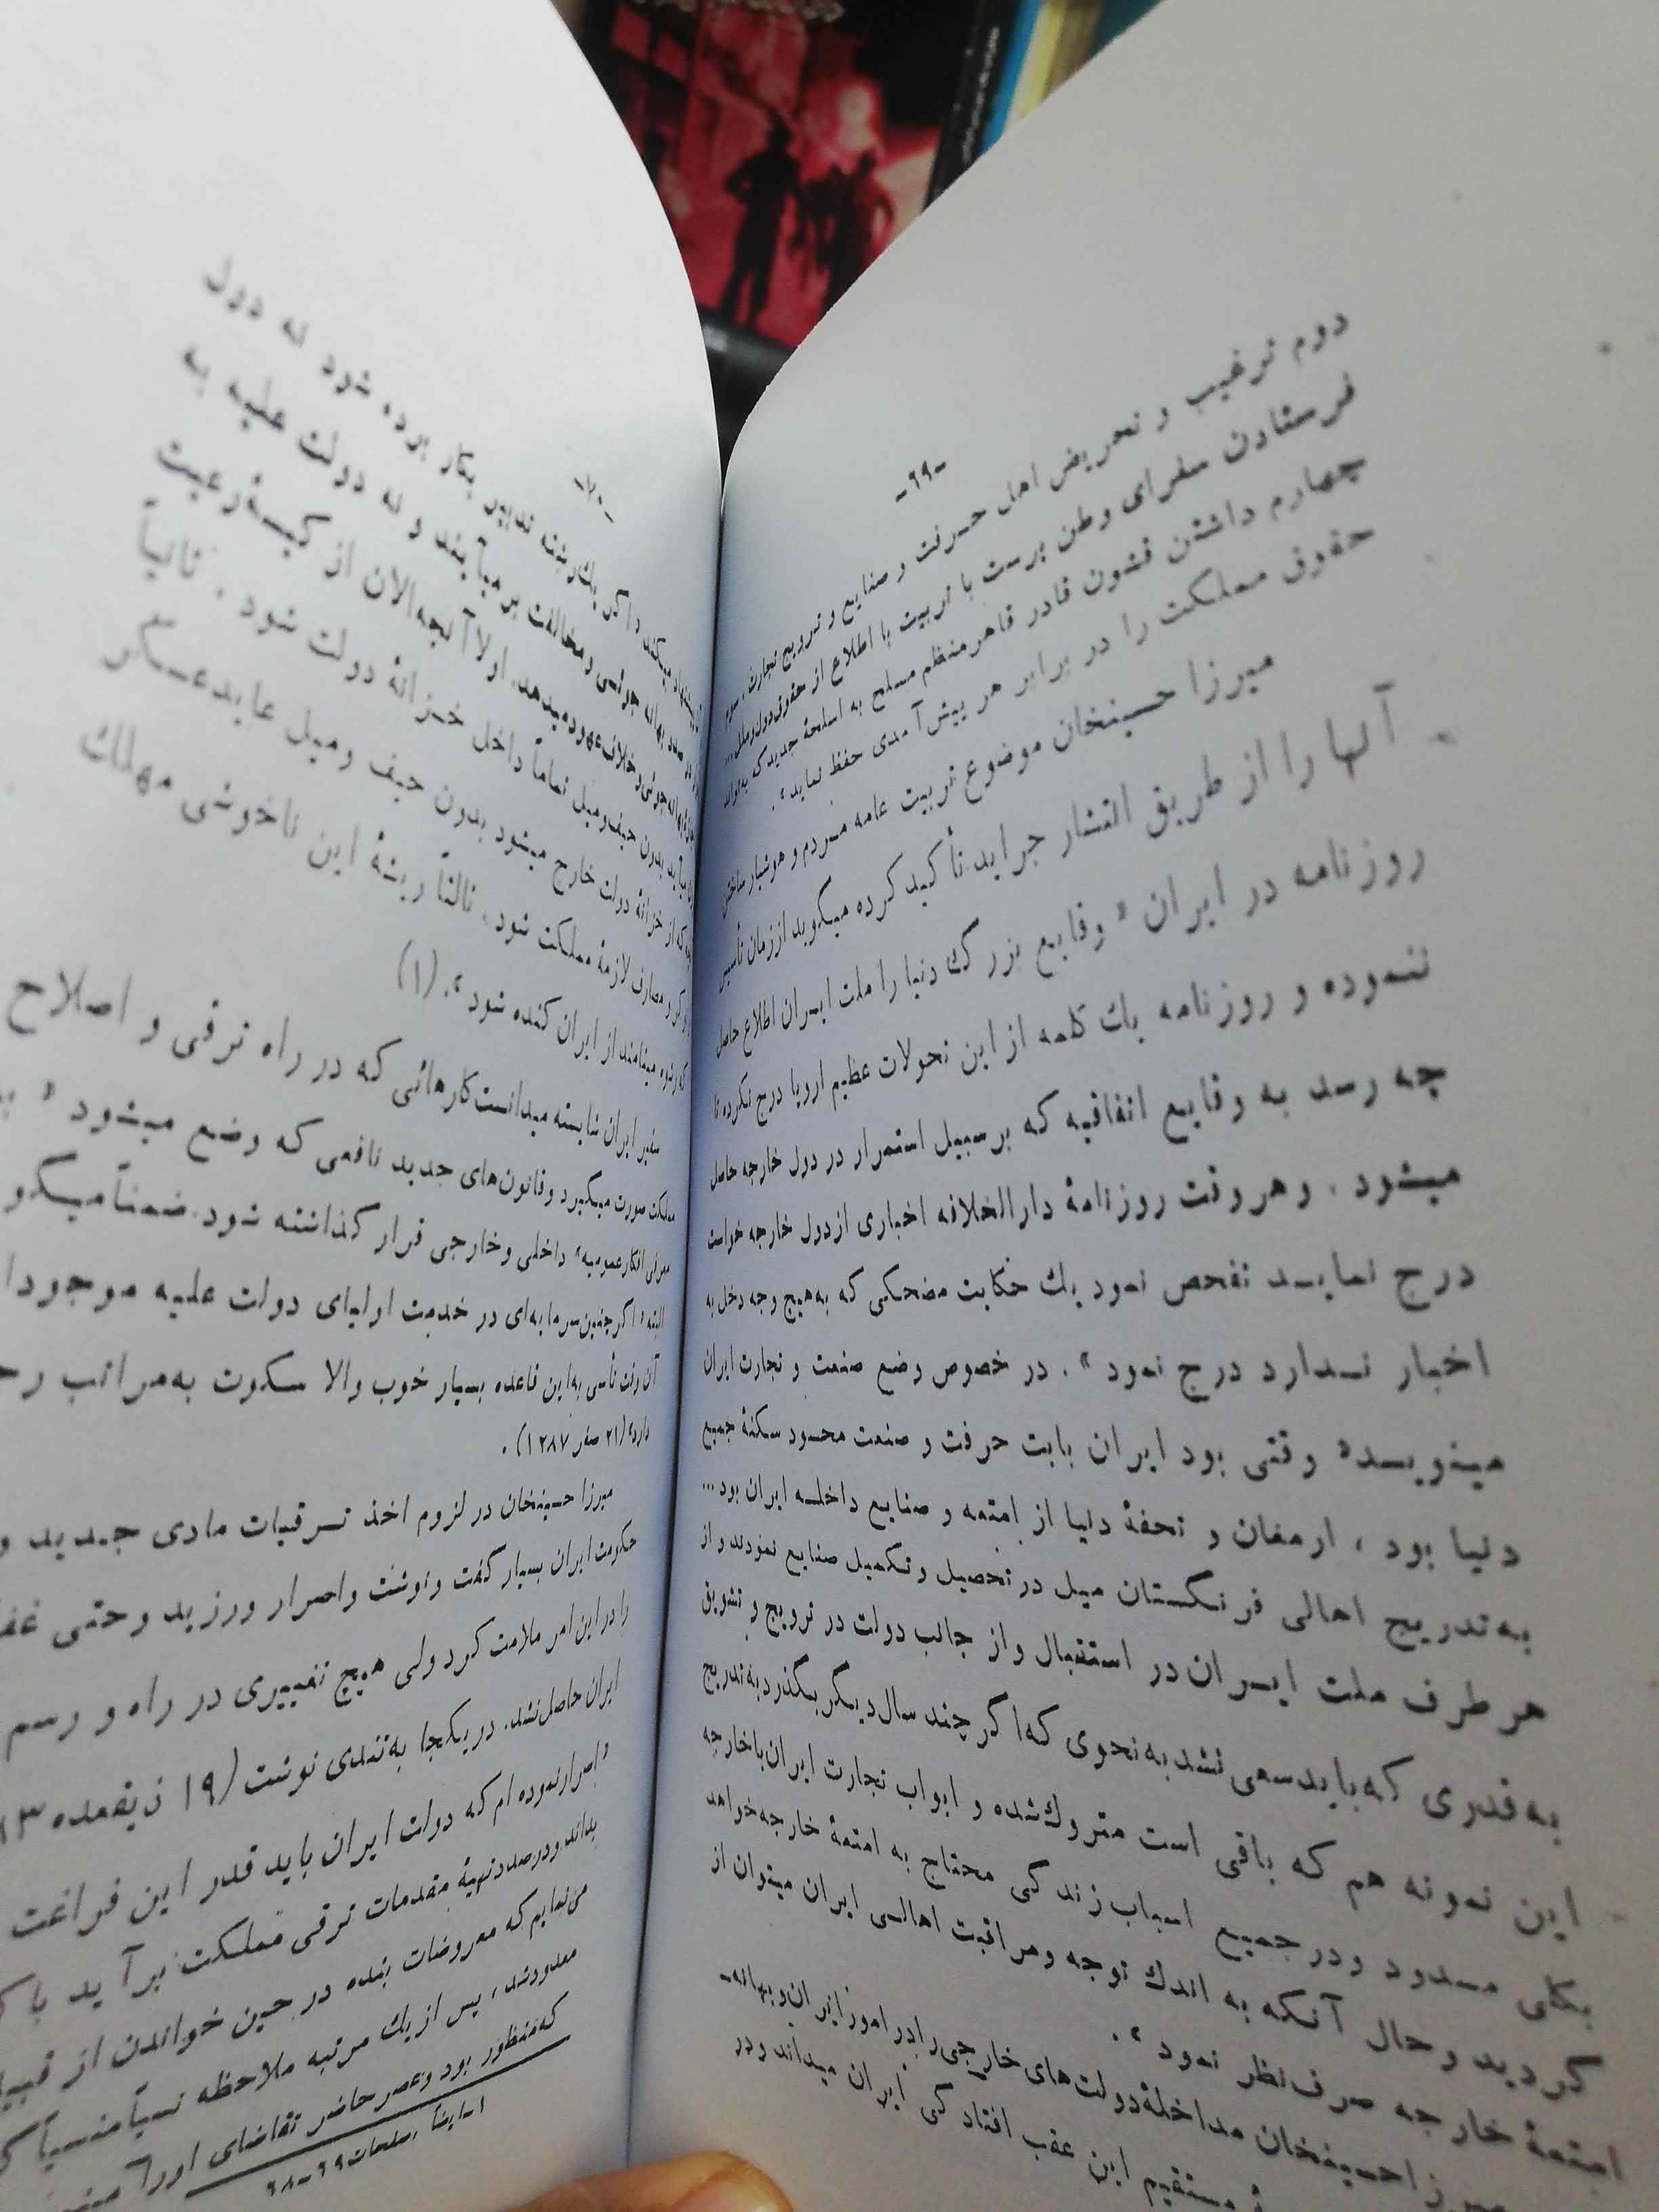 -۶۹-
دوم ترغیب و تحریض اهل حرفت و صنایع و ترویج تجارت، سوم
فرستادن سفرای وطن پرست با تربیت با اطلاع از حقوق دول و ملل...
چهارم داشتن قشون قادر قاهر منظم مسلح به اسلحهٔ جدید که بتواند
حقوق مملکت را در برابر هر پیش‌آمدی حفظ نماید».
میرزا حسینخان موضوع تربیت عامه مردم و هوشیار ساختن
آنها را از طریق انتشار جراید تأکید کرده میگوید از زمان تأسیس
روزنامه در ایران «وقایع بزرگ دنیا را ملت ایران اطلاع حاصل
ننموده و روزنامه یك کلمه از این تحولات عظیم اروپا درج نکرده تا
چه رسد به وقایع اتفاقیه که برسبیل استمرار در دول خارجه حاصل
میشود. و هر وقت روزنامهٔ دارالخلافه اخباری از دول خارجه خواست
درج نماید تفحص نمود یك حکایت مضحکی که به‌هیچ وجه دخل به
اخبار ندارد درج نمود». در خصوص وضع صنعت و تجارت ایران
مینویسد «وقتی بود ایران بابت حرفت و صنعت محسود سکنهٔ جمیع
دنیا بود، ارمغان و تحفهٔ دنیا از امتعه و صنایع داخله ایران بود...
به‌تدریج اهالی فرنگستان میل در تحصیل و تکمیل صنایع نمودند و از
هر طرف ملت ایران در استقبال و از جانب دولت در ترویج و تشویق
به قدری که باید سعی نشد به نحوی که اگر چند سال دیگر بگذرد به‌تدریج
این نمونه هم که باقی است متروك شده و ابواب تجارت ایران با خارجه
بکلی مسدود و در جمیع اسباب زندگی محتاج به امتعهٔ خارجه خواهد
گردید و حال آنکه به اندك توجه و مراقبت اهالی ایران میتوان از
امتعهٔ خارجه صرف‌نظر نمود».
حسینخان مداخلهٔ دولت‌های خارجی را در امور ایران و بهانه-
مستقیم این عقب افتادگی ایران میداند و در
-۷۰-
میکند «اگر یك رشته تدبیر بکار برده شود نه دول
صدد بهانه جوئی و مخالفت بر میآیند و نه دولت علیه به
بهانه‌جوئی و خلاف عهود میدهد. اولا آنچه الان از کیسهٔ رعیت
بدون حیف و میل تماماً داخل خزانهٔ دولت شود. ثانیاً
که از خزانهٔ دولت خارج میشود بدون حیف و میل عاید عسکر
و مصارف لازمهٔ مملکت شود. ثالثاً ریشهٔ این ناخوشی مهلك
که رشوه مینامند از ایران کنده شود». (۱)
سفیر ایران شایسته میدانست کارهائی که در راه ترقی و اصلاح
مملکت صورت میگیرد و قانون‌های جدید نافعی که وضع میشود «
معرض افکار عمومیه» داخلی و خارجی قرار گذاشته شود. ضمناً میگو
البته «اگر چنین سرمایه‌ای در خدمت اولیای دولت علیه موجود
آن وقت تأسی به‌این قاعده بسیار خوب والا سکوت به‌مراتب
دارد» (۲۱ صفر ۱۲۸۷).
میرزا حسینخان در لزوم اخذ ترقیات مادی جدید و
حکومت ایران بسیار گفت و نوشت و اصرار ورزید و حتی
را در این امر ملامت کرد ولی هیچ تغییری در راه و رسم
ایران حاصل نشد. در یکجا به‌تندی نوشت (۱۹ ذیقعده
و اصرار نموده‌ام که دولت ایران باید قدر این فراغت
بداند و درصدد تهیهٔ مقدمات ترقی مملکت برآید با
می‌نمایم که معروضات بنده در حین خواندن از
معدود شد، پس از یك مرتبه ملاحظه نسیاً منسیاً
که منظور بود و عصر حاضر تقاضای او را
۱-ایضاً، صفحات ۶۹-۶۸